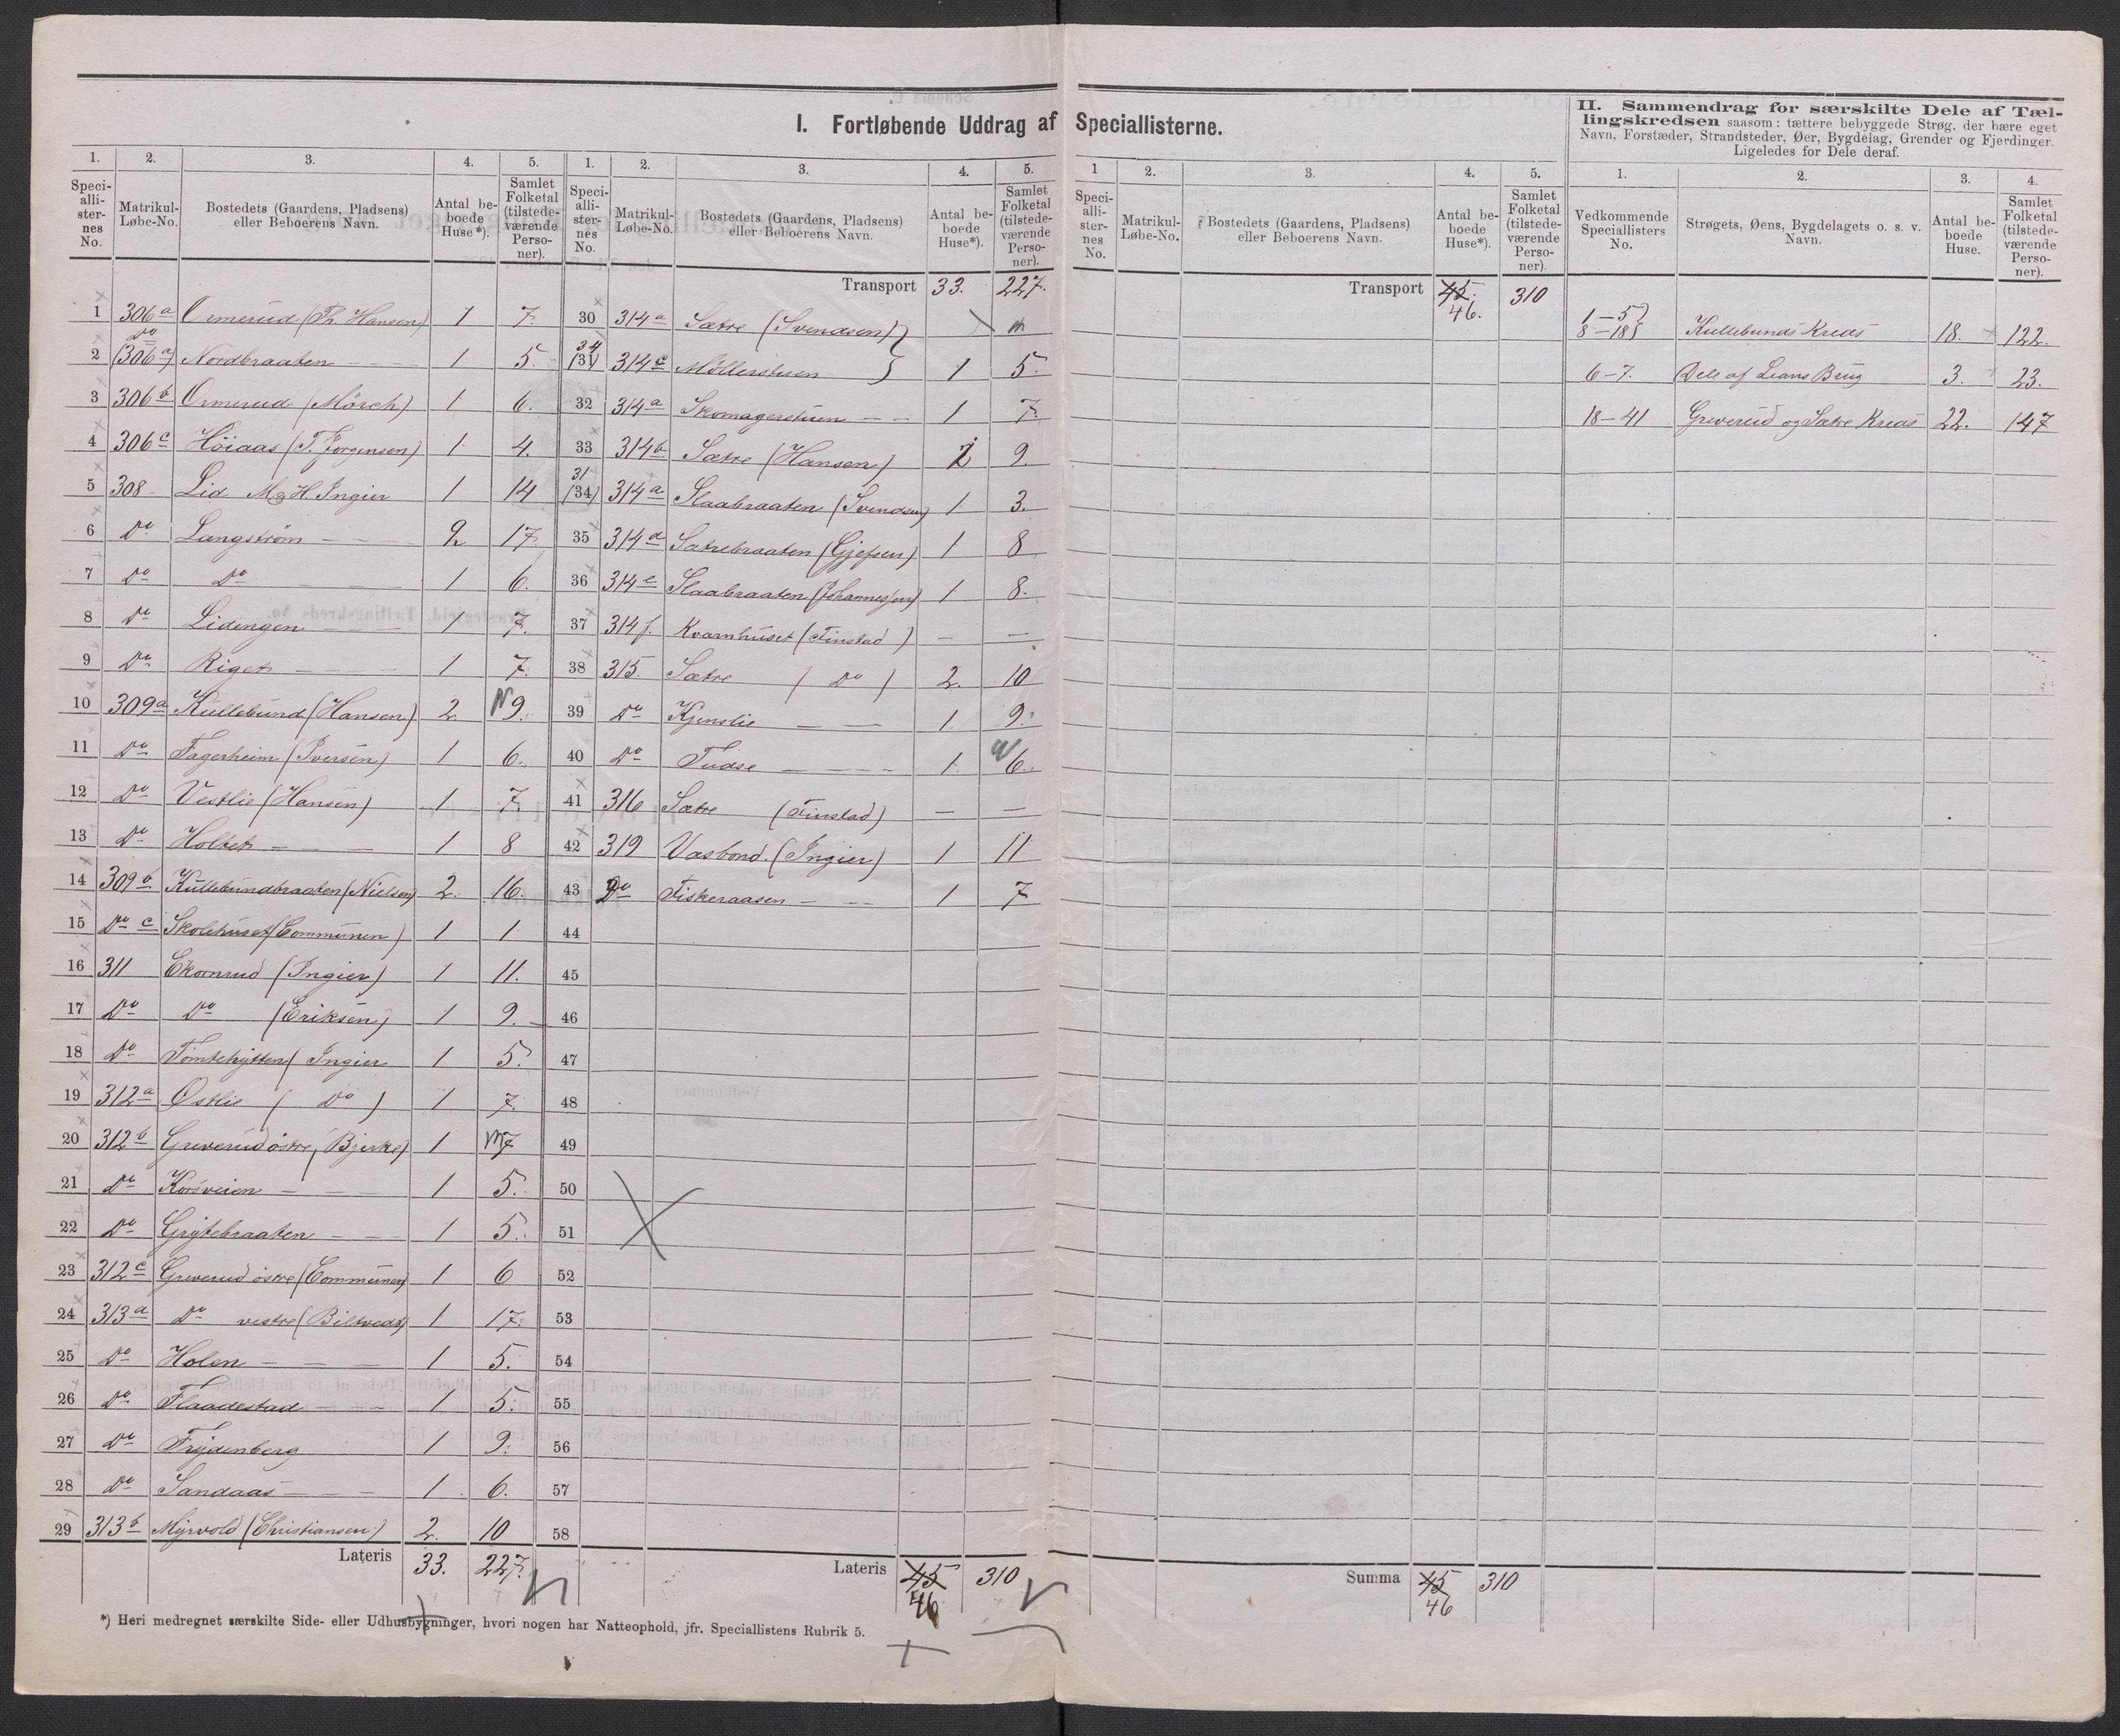 I. Fortløbende Uddrag af Speciallisterne.
1. 2. 3. 4. 5.
Speciallisternes No. Matrikul-Løbe-No. Bostedets (Gaardens, Pladsens) eller Beboerens Navn. Antal beboede Huse*). Samlet Folketal (tilstedeværende Personer).
1 306a Ormerud (Th. Hansen) 1 7.
2 Do (306a) Nordbraaten 1 5.
3 306b Ormerud (Mörch) 1 6.
4 306c Höiaas (T. Jorgensen) 1 4.
5 308 Lid M & H Ingier 1 14
6 Do Langström 2 17.
7 Do Do 1 6.
8 Do Lidengen 1 7.
9 Do Riget 1 7.
10 309a Kullebund (Hansen) 2. 9.
11 Do Fagerheim (Iversen) 1 6.
12 Do Vestlie (Hansen) 1 7.
13 Do Holtet 1 8
14 309b Kullebundbraaten (Nielsen) 2. 16.
15 Do c Skolehuset (Communen) 1 1
16 311 Ekornrud (Ingier) 1 11.
17 Do Do (Eriksen) 1 9.
18 Do Tomtehytten ( Ingier 1 5.
19 312a Østlie ( Do ) 1 7.
20 312b Greverud östre, (Bjerke) 1 7
21 Do Korsveien 1 5.
22 Do Grytebraaten 1 5.
23 312c Greverud östre (Communen) 1 6
24 313a Do vestre (Biltveds) 1 17.
25 Do Holen 1 5.
26 Do Flaadestad 1 5.
27 Do Frydenberg 1 9.
28 Do Sandaas 1 6.
29 313b Myrvold (Christiansen) 2. 10
Lateris 33. 227.
*) Heri medregnet særskilte Side- eller Udhusbygninger, hvori nogen har Natteophold, jfr. Speciallistens Rubrik 5.
1. 2. 3. 4. 5.
Speciallisternes No. Matrikul-Løbe-No. Bostedets (Gaardens, Pladsens) eller Beboerens Navn. Antal beboede Huse*). Samlet Folketal (tilstedeværende Personer).
Transport 33. 227.
30 314a Sætre (Svendsen)
34 (31) 314c Möllerstuen 1 5.
32 314a Skomagerstuen 1 7.
33 314b Sætre (Hansen) 2 9.
31 (34) 314a Slaabraaten (Svendsen) 1 3.
35 314d Sætrebraaten (Gjefsen) 1 8
36 314e Slaabraaten (Johannessen) 1 8.
37 314f. Kvarnhuset (Finstad ) — —
38 315. Sætre ( Do ) 2. 10
39 Do Kjenslie 1. 9.
40 Do Tudse 1. 6.
41 316 Sætre (Finstad) — —
42 319 Vasbond. (Ingier) 1 11
43 Do Fiskeraasen 1 7
44
45
46
47
48
49
50
51
52
53
54
55
56
57
58
Lateris 45 46 310
1 2. 3. 4. 5.
Speciallisternes No. Matrikul-Løbe-No. Bostedets (Gaardens, Pladsens) eller Beboerens Navn. Antal beboede Huse*). Samlet Folketal (tilstedeværende Personer).
Transport 45. 46. 310
Summa 45 46 310
II. Sammendrag for særskilte Dele af Tællingskredsen saasom: tættere bebyggede Strøg, der bære eget Navn, Forstæder, Strandsteder, Øer, Bygdelag, Grender og Fjerdinger. Ligeledes for Dele deraf.
1. 2. 3. 4.
Vedkommende Speciallisters No. Strøgets, Øens, Bygdelagets o. s. v. Navn. Antal beboede Huse. Samlet Folketal (tilstedeværende Personer).
1—5 8—18 Kullebunds Kreds 18. 122.
6—7. Dele af Lians Brug 3. 23.
18—41 Greverud og Sætre Kreds 22. 147